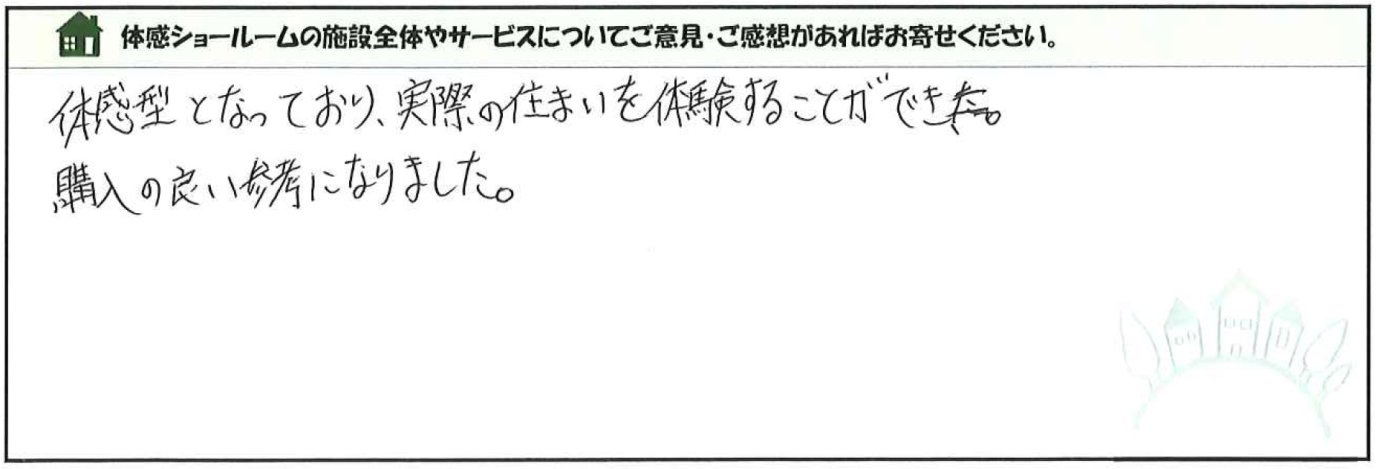 体感ショールームの施設全体やサービスについてご意見・ご感想があればお寄せください。
体感型となっており、実際の住まいを体験することができ
購入の良い参考になりました。